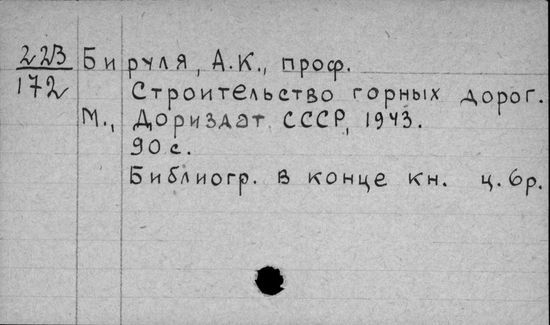 223 Бируля, А.К., проф.
172 Строительство горных дорог.
М., Дориздат СССР, 1943.
90 с.
Библиогр. в конце кн. ц. 6р.